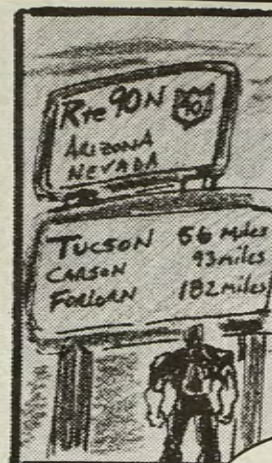 Rte 90N 90
ARIZONA
NEVADA
TUCSON 56 miles
CARSON 93 miles
FORLORN 182 miles